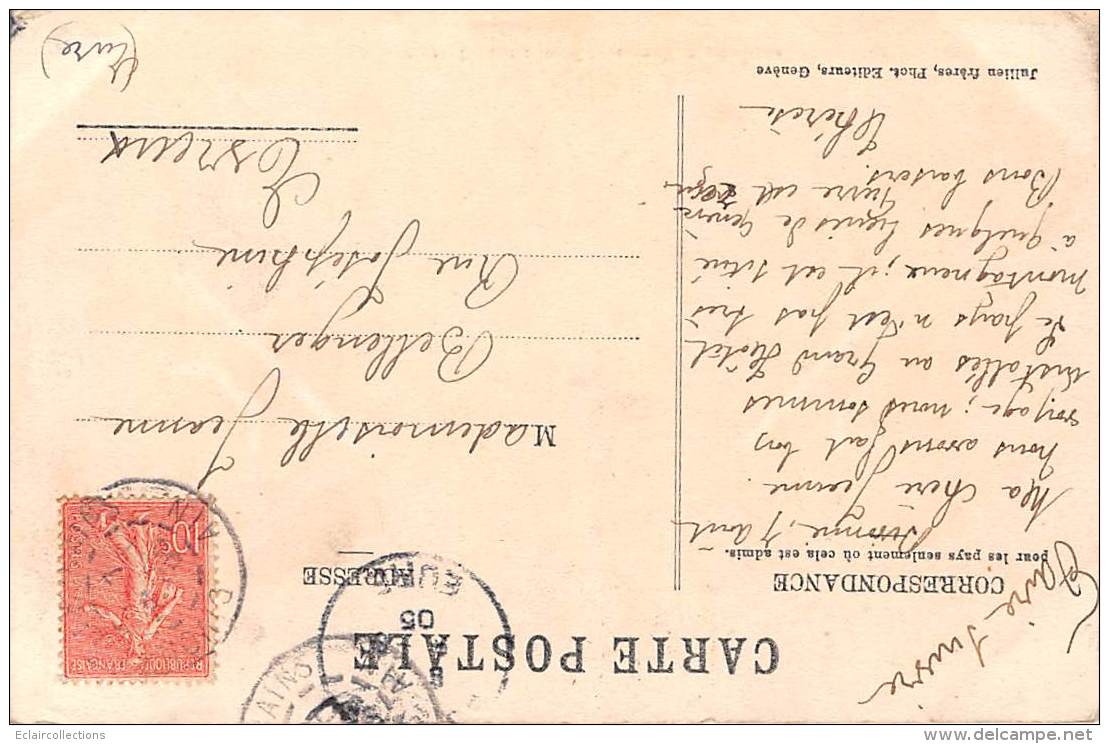 CARTE POSTALE
CORRESPONDANCE
pour les pays seulement où cela est admis.
ADRESSE
Faire suivre
7 août
Ma chère Jeanne
nous avons fait bon
voyage; nous sommes
installés au Grand Hôtel
Le pays n'est pas très
montagneux; il est situé
à quelques lignes de Genève
Bons baisers.
Thérèse
Mademoiselle Jeanne
Bellenger
Rue Joséphine
Evreux
(Eure)
Jullien frères, Phot. Editeurs, Genève
10c
POSTES
REPUBLIQUE FRANÇAISE
AIN
EURE
05
BAINS
Eclaircollections
delcampe.net